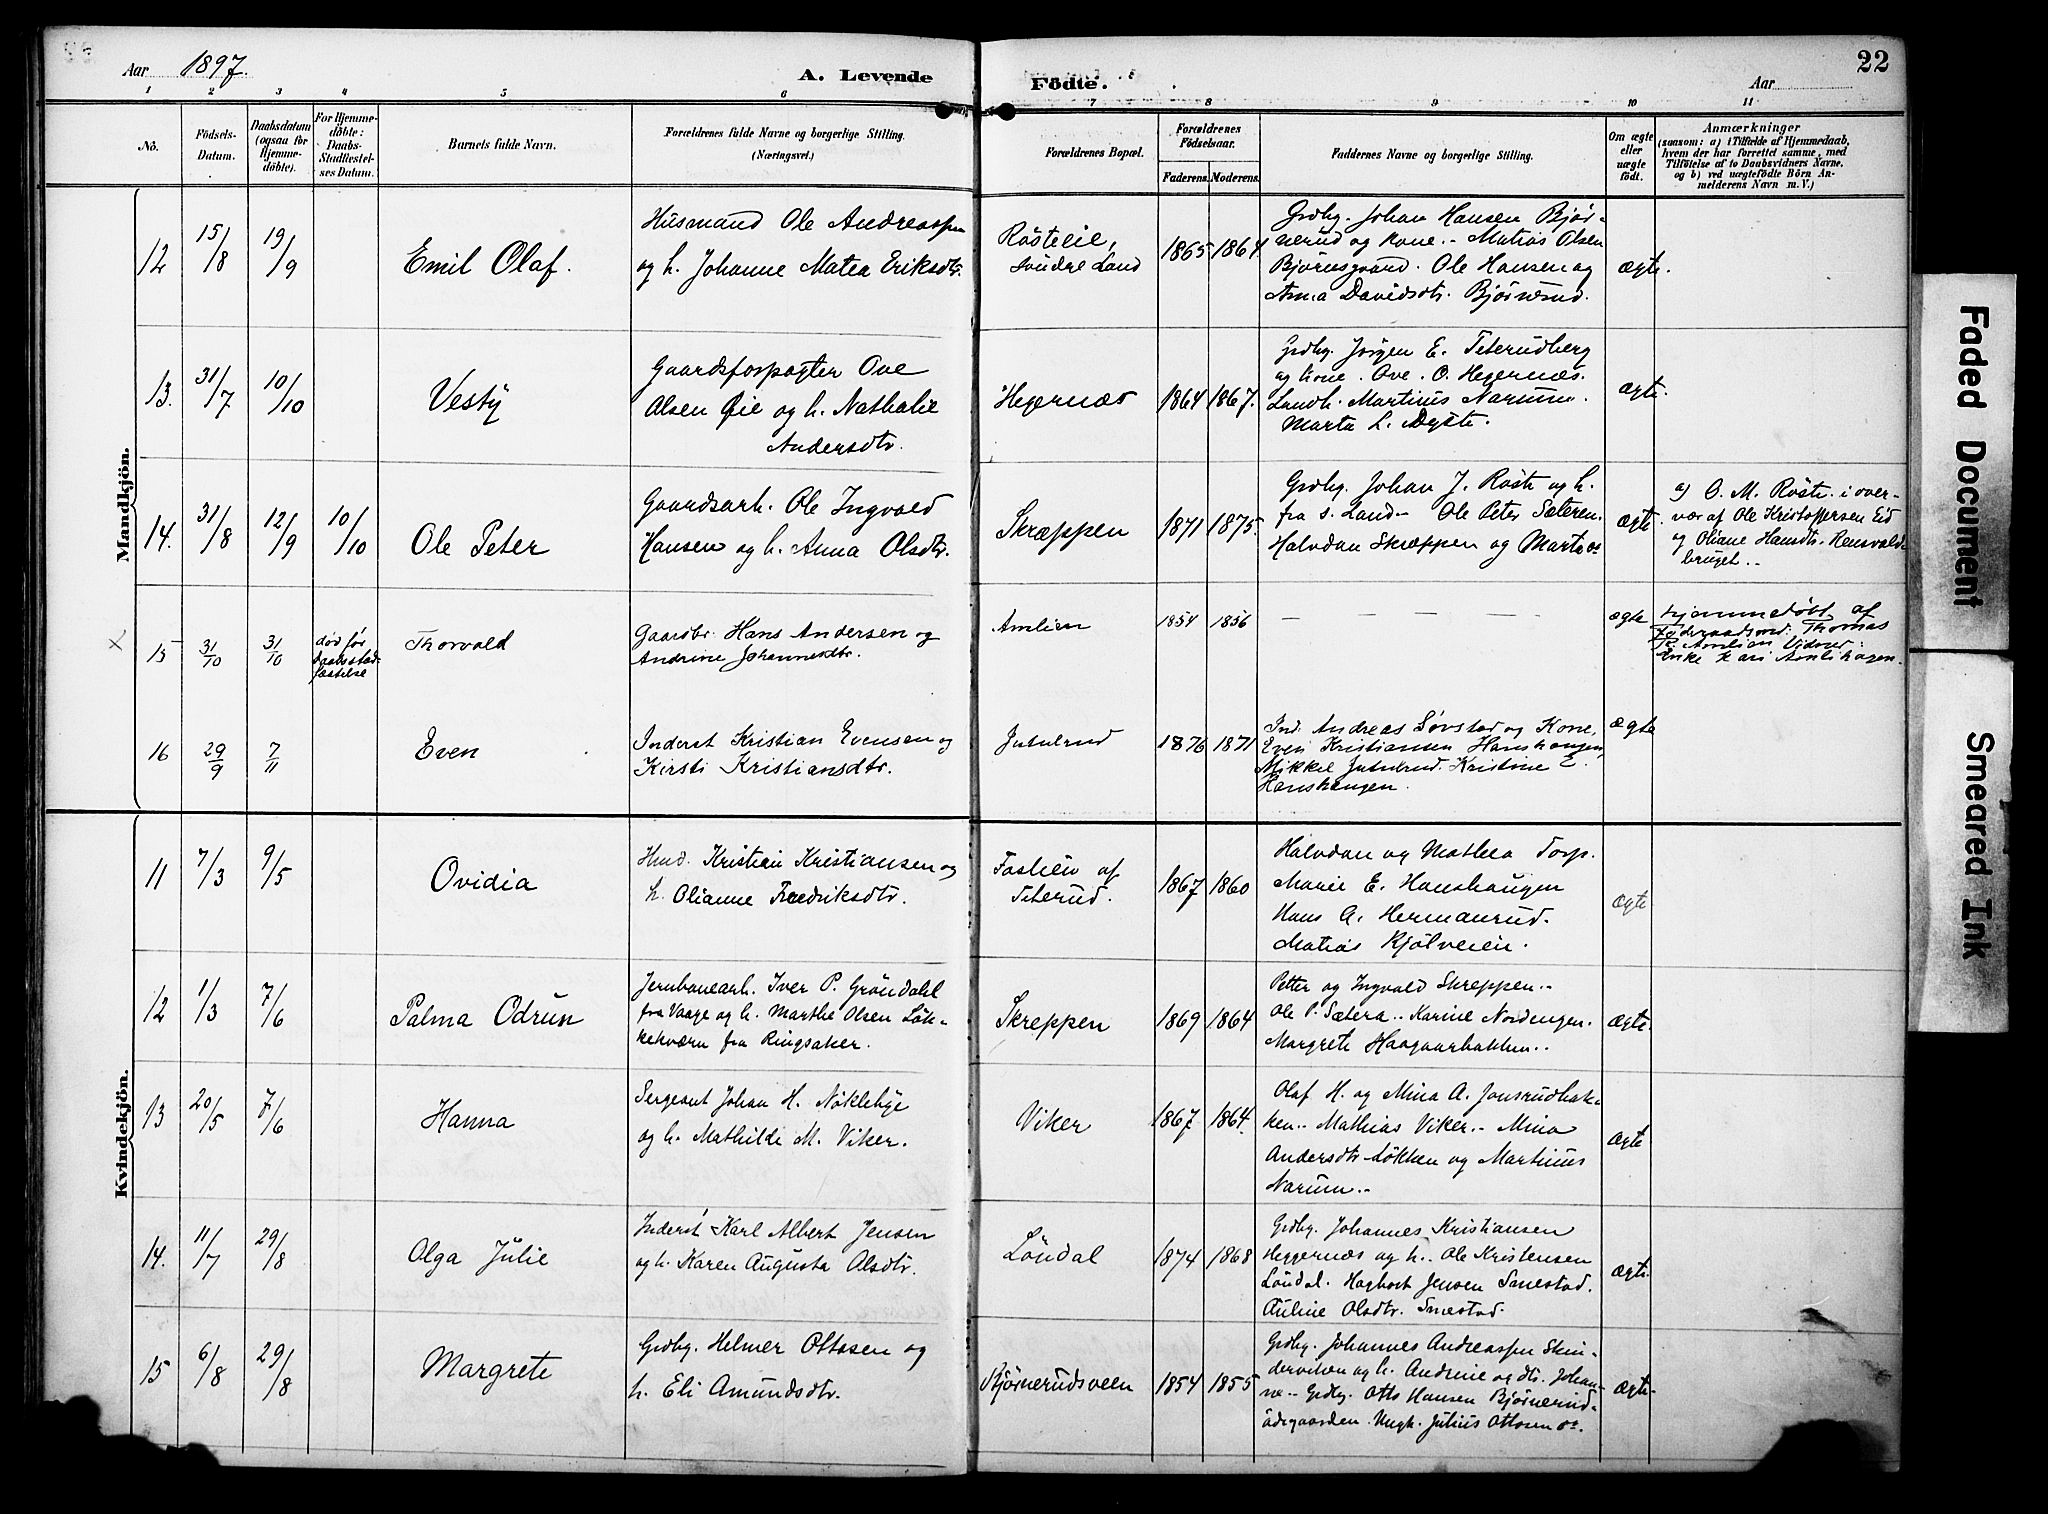 22
Aar 1897. A. Levende Födte. Aar
1 2 3 4 5 6 7 8 9 10 11
No.
Födsels-
Datum.
Daabsdatum
(ogsaa for
Hjemme-
döbte).
For Hjemme-
döbte:
Daabs-
Stadfæstel-
ses Datum.
Barnets fulde Navn.
Forældrenes fulde Navne og borgerlige Stilling.
(Næringsvei.)
Forældrenes Bopæl.
Forældrenes
Födselsaar.
Faderens. Moderens.
Faddernes Navne og borgerlige Stilling.
Om ægte
eller
uægte
født.
Anmærkninger
(saasom: a) i Tilfælde af Hjemmedaab,
hvem der har forrettet samme, med
Tilföielse af to Daabsvidners Navne.
og b) ved uægtefödte Börn An-
melderens Navn m. V.)
Mandkjön.
12 15/8 19/9 Emil Olaf.
Husmand Ole Andreassen
og h. Johanne Matea Eriksdtr.
Rösteeie,
söndre Land
1865 1864
Grdbg. Johan Hansen Bjør-
nerud og kone.- Matias Olsen
Bjørnsgaard. Ole Hansen og
Anna Davidsdtr. Bjørnerud.
ægte.
13. 31/7 10/10 Vesty
Gaardsforpagter Ove
Olsen Øie og h. Nathalie
Andersdtr.
Hegernæs 1864 1867.
Grdbg. Jörgen E. Teterudberg
og kone. Ove. O. Hegernæs.
Landh. Martinus Narum.
Marta L. Dyste.
ægte.
14. 31/8 12/9 10/10 Ole Peter
Gaardsarb. Ole Ingvald
Hansen og h. Anna Olsdtr.
Skræppen 1871 1875.
Grdbg. Johan J. Röste og h.
fra s. Land- Ole Peter Sæteren.
Halvdan Skræppen og Marte os
ægte
a) O. M. Röste i over-
vær af Ole Kristoffersen Eid
og Oliane Hansdtr. Rensvald-
bruget..
X 15 31/10 31/10
død før
Daabsstad-
fæstelse
Thorvald
Gaardbr. Hans Andersen og
Andrine Johannesdtr.
Amlien 1854 1856 — — —
ægte
hjemmedøbt af
Føderaadsmd. Thomas
T. Amlien Vidner:
Enke Kari Amlihagen.
16 29/9 7/11 Even
Inderst Kristian Evensen og
Kirsti Kristiansdtr.
Jutulrud 1876 1871
Ind. Andreas Sørstad og Kone,
Even Kristiansen Hanshaugen
Mikkel Jutulrud. Kristine E.
Hanshaugen.
ægte
Kvindekjön.
11 7/3 9/5 Ovidia
Hmd. Kristian Kristiansen og
h. Olianne Fredriksdtr.
Foslien af
Teterud.
1867 1860
Halvdan og Mathea Torp.
Marie E. Hanshaugen
Hans A. Hermanrud.
Matias Kjölveien.
ægte
12 1/3 7/6 Palma Odrun
Jernbanearb. Iver P. Gröndahl
fra Vaage og h. Marthe Olsen Løk-
kekværn fra Ringsaker.
Skreppen 1869 1864
Petter og Ingvald Skreppen.-
Ole P. Sætera.. Karine Nordengen.
Margrete Haagaarbakken..
ægte.
13 20/5 7/6 Hanna
Sergeant Johan H. Nøkleby
og h. Mathilde M. Viker.
Viker 1867 1864.
Olaf H. og Mina A. Jonsrudbak-
ken.. Mathias Viker.- Mina
Andersdtr Løkken og Martinus
Narum.-
ægte
14. 11/7 29/8 Olga Julie
Inderst Karl Albert Jensen
og h. Karen Augusta Olsdtr.
Löndal 1874 1868
Grdbg. Johannes Kristiansen
Heggernæs og h.. Ole Kristensen
Löndal. Hagbart Jensen Smestad.
Auline Olsdtr. Smestad.
ægte.
15 6/8 29/8 Margrete
Grdbg. Helmer Ottosen og
h. Eli Amundsdtr.
Bjørnerudsveen 1854 1855
Grdbg. Johannes Andreassen Skin-
derviken og h. Andrine og dtr. Johan-
ne.- Grdbg. Otto Hansen Bjørnerud-
ødegaarden. Ungk. Julius Ottosen os.
ægte.
Faded Document
Smeared Ink